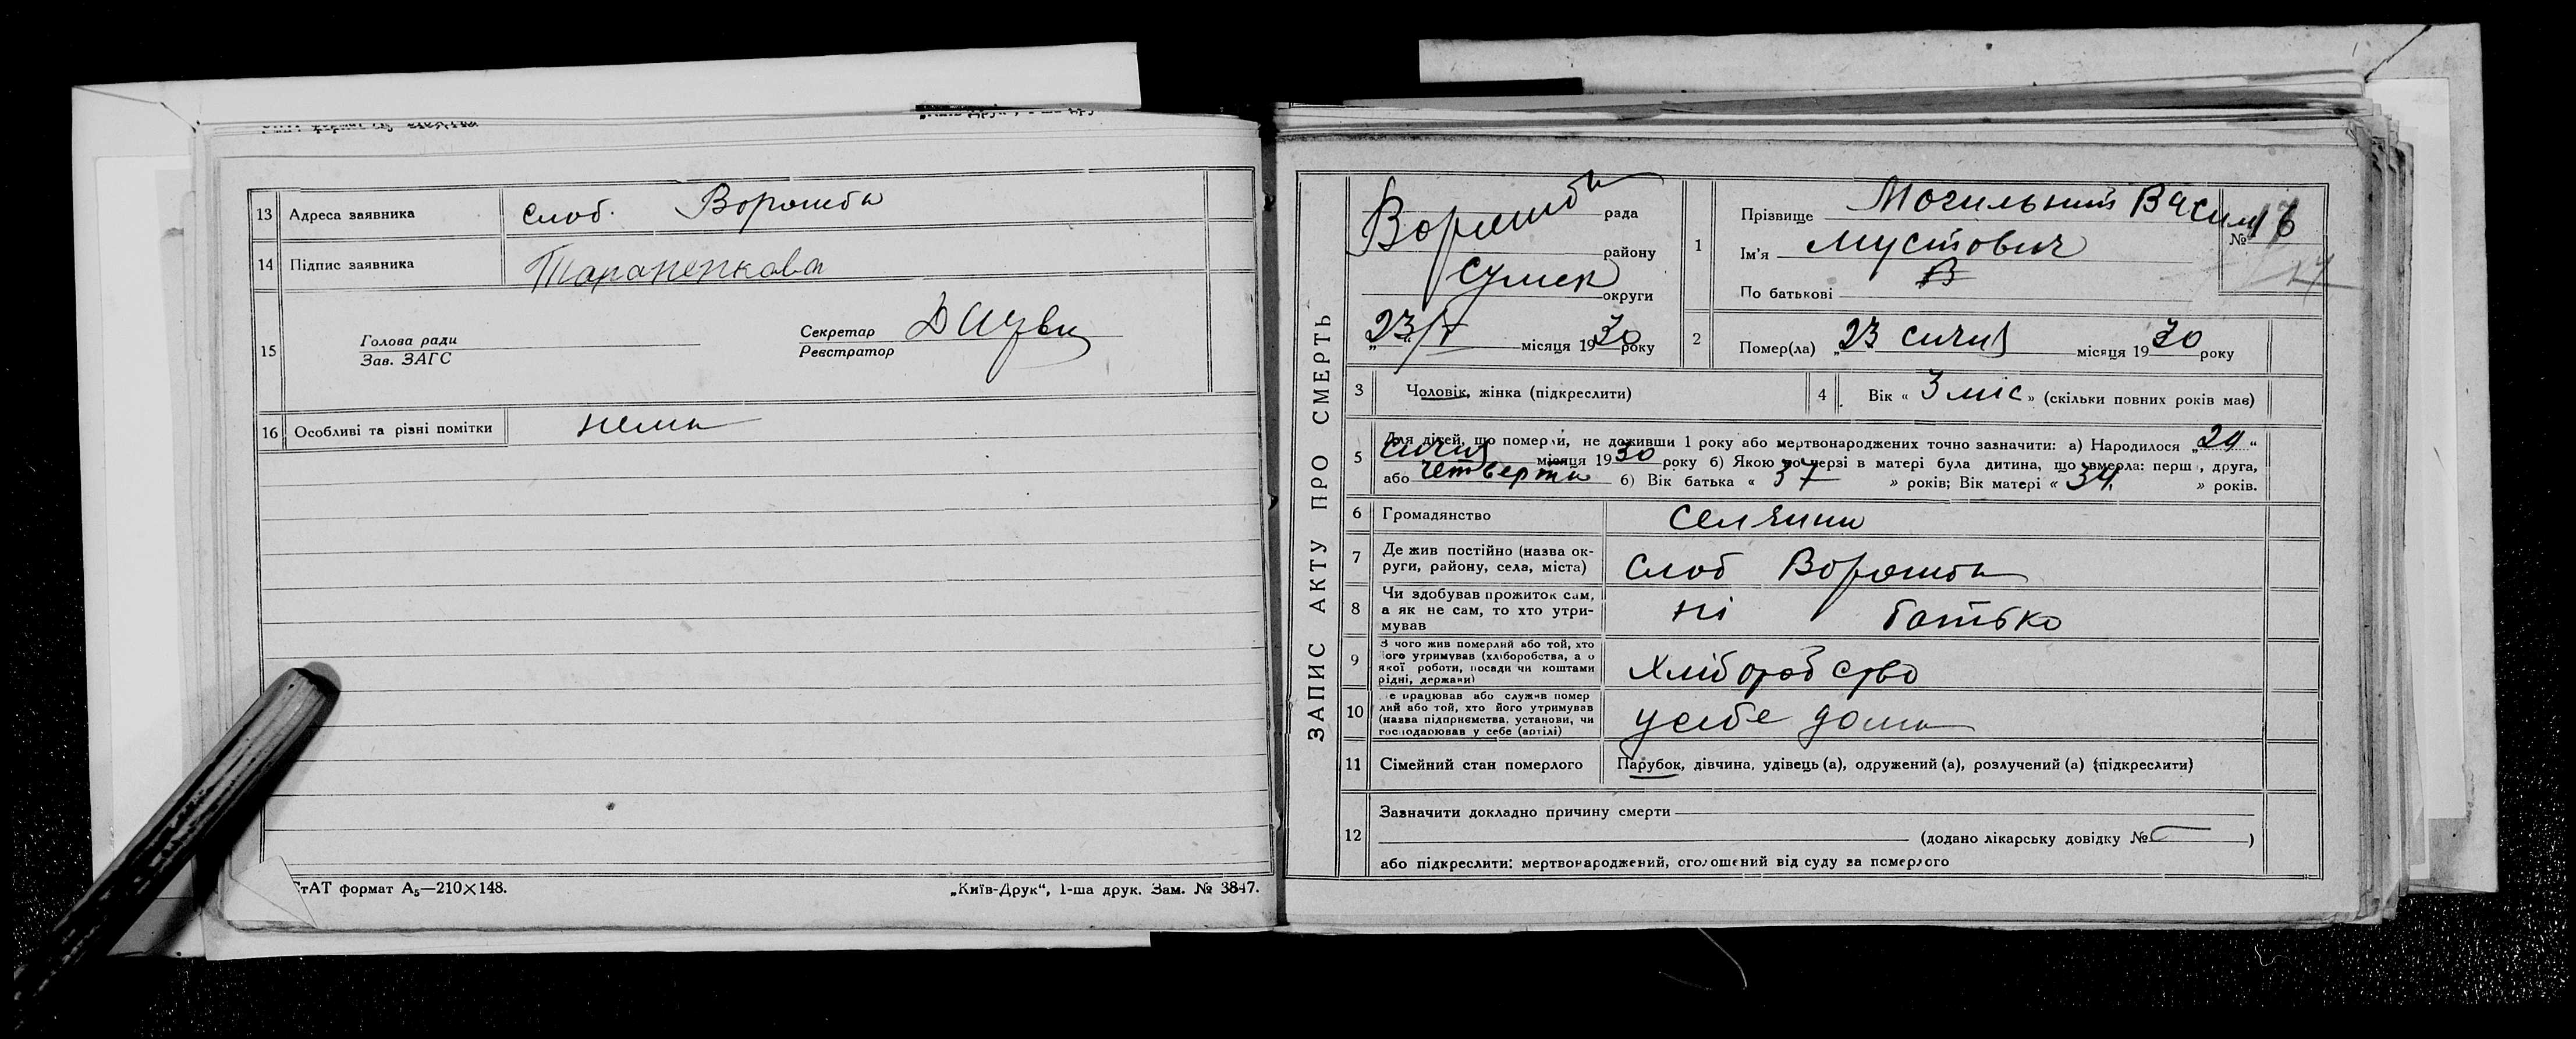 13 Адреса заявника слоб. Ворожба
14 Підпис заявника
15 Голова ради
Зав. ЗАГС
Секретар
Реєстратор
16 Особливі та різні помітки нема
СтАТ формат А₅—210×148.
„Київ-Друк“, 1-ша друк. Зам. № 3847.
ЗАПИС АКТУ ПРО СМЕРТЬ
Ворожба рада
району
Сумск округи
23/I місяця 1930 року
1 Прізвище Могильний Васил
Ім'я Мустович
По батькові
№ 16
17
2 Помер(ла) „23 сичня місяця 1930 року
3 Чоловік, жінка (підкреслити)
4 Вік « 3 міс » (скільки повних років має)
5 Для дітей, що померли, не доживши 1 року або мертвонароджених точно зазначити: а) Народилося „29“
сичня місяця 1930 року б) Якою по черзі в матері була дитина, що вмерла: перш , друга,
або четверта б) Вік батька « 37 » років; Вік матері « 34 » років.
6 Громадянство селянин
7 Де жив постійно (назва ок-
руги, району, села, міста) слоб Ворожба
8 Чи здобував прожиток сам,
а як не сам, то хто утри-
мував ні батько
9 З чого жив померлий або той, хто
його утримував (хліборобства, а о
якої роботи, посади чи коштами
рідні, держави) Хліборобство
10 Де працював або служив помер
лий або той, хто його утримував
(назва підприємства, установи, чи
господарював у себе (артілі) у себе дома
11 Сімейний стан померлого Парубок, дівчина, удівець (а), одружений (а), розлучений (а) (підкреслити)
12 Зазначити докладно причину смерти
(додано лікарську довідку № )
або підкреслити: мертвонароджений, оголошений від суду за померлого